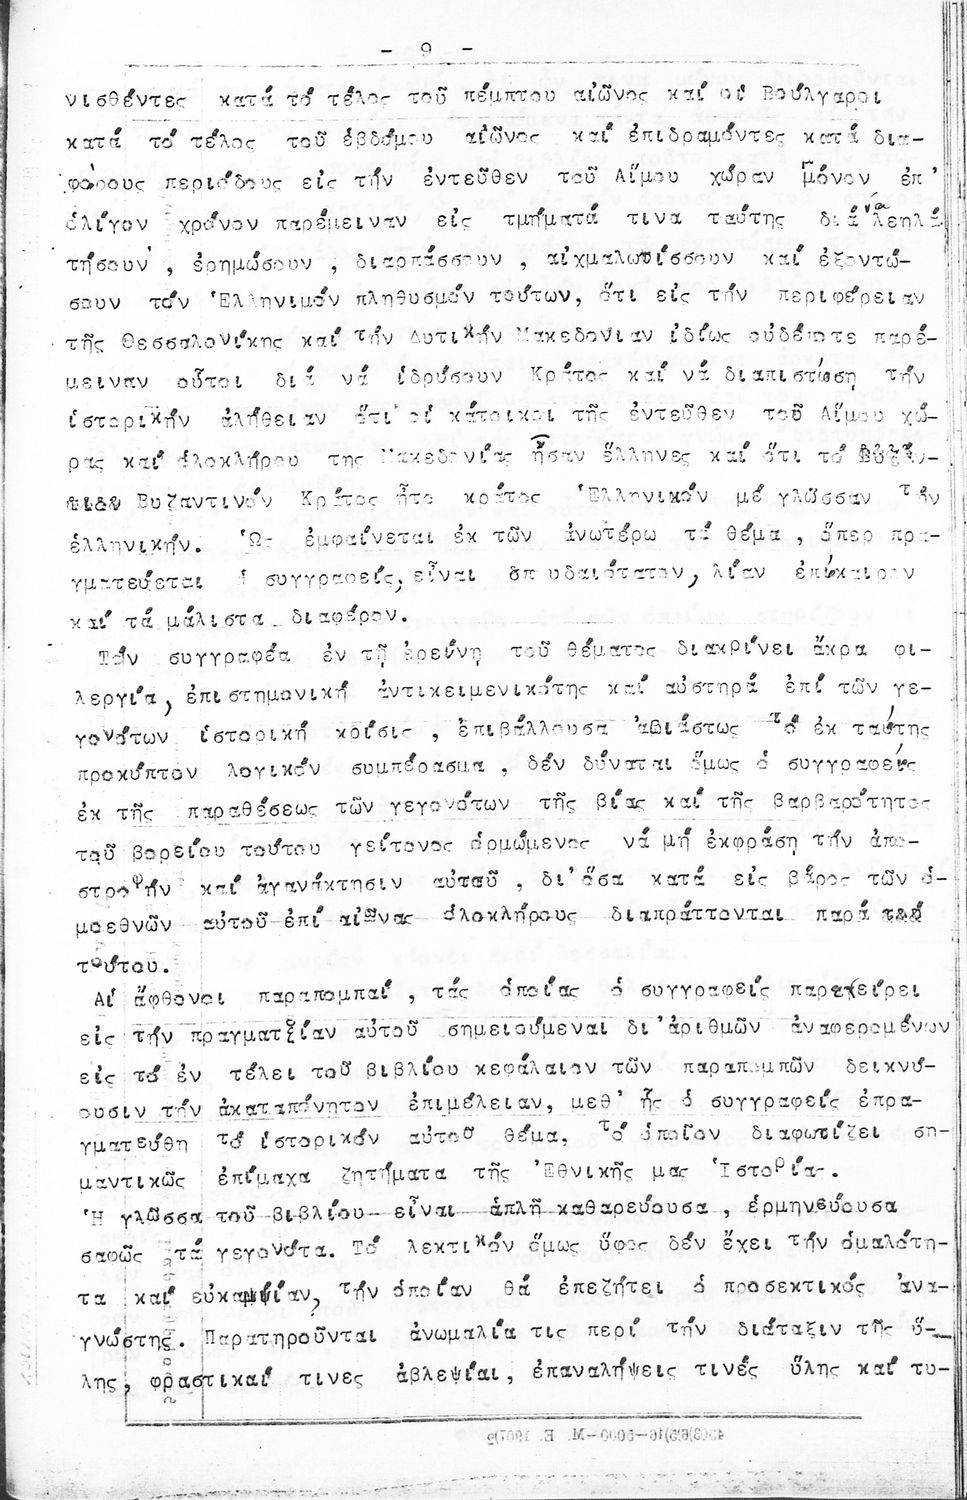 - 9 -
νισθέντες κατά τό τέλος τοῦ πέμπτου αἰῶνος καί οἱ Βούλγαροι
κατά τό τέλος τοῦ ἑβδόμου αἰῶνος καί ἐπιδραμόντες κατά δια-
φόρους περιόδους εἰς τήν ἐντεῦθεν τοῦ Αἵμου χώραν μόνον ἐπ'
ὀλίγον χρόνον παρέμειναν εἰς τμήματά τινα ταύτης διά νά λεηλα
τήσουν , ἐρημώσουν , διαρπάσσουν , αἰχμαλωτίσσουν καί ἐξοντώ-
σουν τόν Ἑλληνιμόν πληθυσμόν τούτων, ὅτι εἰς τήν περιφέρειαν
τῆς Θεσσαλονίκης καί τήν Δυτικήν Μακεδονίαν ἰδίως οὐδέποτε παρέ-
μειναν οὗτοι διά νά ἱδρύσουν Κράτος καί νά διαπιστώση τήν
ἱστορικήν ἀλήθειαν ὅτι οἱ κάτοικοι τῆς ἐντεῦθεν τοῦ Αἵμου χώ-
ρας καί ὁλοκλήρου της Μακεδονίας ἦσαν ἕλληνες καί ὅτι τό
Βυζαντινόν Κράτος ἦτο κράτος Ἑλληνικόν μέ γλῶσσαν τήν
ἑλληνικήν. Ὡς ἐμφαίνεται ἐκ τῶν ἀνωτέρω τό θέμα , ὅπερ πρα-
γματεύεται ὁ συγγραφεύς, εἶναι σπουδαιότατον, λίαν ἐπίκαιρον
καί τά μάλιστα διαφέρον.
Τόν συγγραφέα ἐν τῇ ἐρεύνη τοῦ θέματος διακρίνει ἄκρα φι-
λεργία, ἐπιστημονική ἀντικειμενικότης καί αὐστηρά ἐπί τῶν γε-
γονότων ἱστορική κρίσις , ἐπιβάλλουσα ἀβιάστως τό ἐκ ταύτης
προκύπτον λογικόν συμπέρασμα , δέν δύναται ὅμως ὁ συγγραφεύς
ἐκ τῆς παραθέσεως τῶν γεγονότων τῆς βίας καί τῆς βαρβαρότητος
τοῦ βορείου τούτου γείτονος ὁρμώμενος νά μή ἐκφράση τήν ἀπο-
στροφήν καί ἀγανάκτησιν αὐτοῦ , δι'ὅσα κατά εἰς βάρος τῶν ὁ-
μοεθνῶν αὐτοῦ ἐπί αἰῶνας ὁλοκλήρους διαπράττονται παρά
τούτου.
Αἱ ἄφθονοι παραπομπαί , τάς ὁποίας ὁ συγγραφεύς παρέχει
εἰς τήν πραγματείαν αὐτοῦ σημειούμεναι δι'ἀριθμῶν ἀναφερομένων
εἰς τό ἐν τέλει τοῦ βιβλίου κεφάλαιον τῶν παραπομπῶν δεικνύ-
ουσιν τήν ἀκαταπόνητον ἐπιμέλειαν, μεθ' ἧς ὁ συγγραφεύς ἐπρα-
γματεύθη τό ἱστορικόν αὐτοῦ θέμα, τό ὁποῖον διαφωτίζει ση-
μαντικῶς ἐπίμαχα ζητήματα τῆς Ἐθνικῆς μας Ἱστορίας.
Ἡ γλῶσσα τοῦ βιβλίου εἶναι ἁπλῆ καθαρεύουσα , ἑρμηνεύουσα
σαφῶς τά γεγονότα. Τό λεκτικόν ὅμως ὕφος δέν ἔχει τήν ὁμαλότη-
τα καί εὐκαμψίαν, τήν ὁποίαν θά ἐπεζήτει ὁ προσεκτικός ἀνα-
γνώστης. Παρατηροῦνται ἀνωμαλία τις περί τήν διάταξιν τῆς ὕ-
λης, φραστικαί τινες ἀβλεψίαι, ἐπαναλήψεις τινές ὕλης καί τυ-